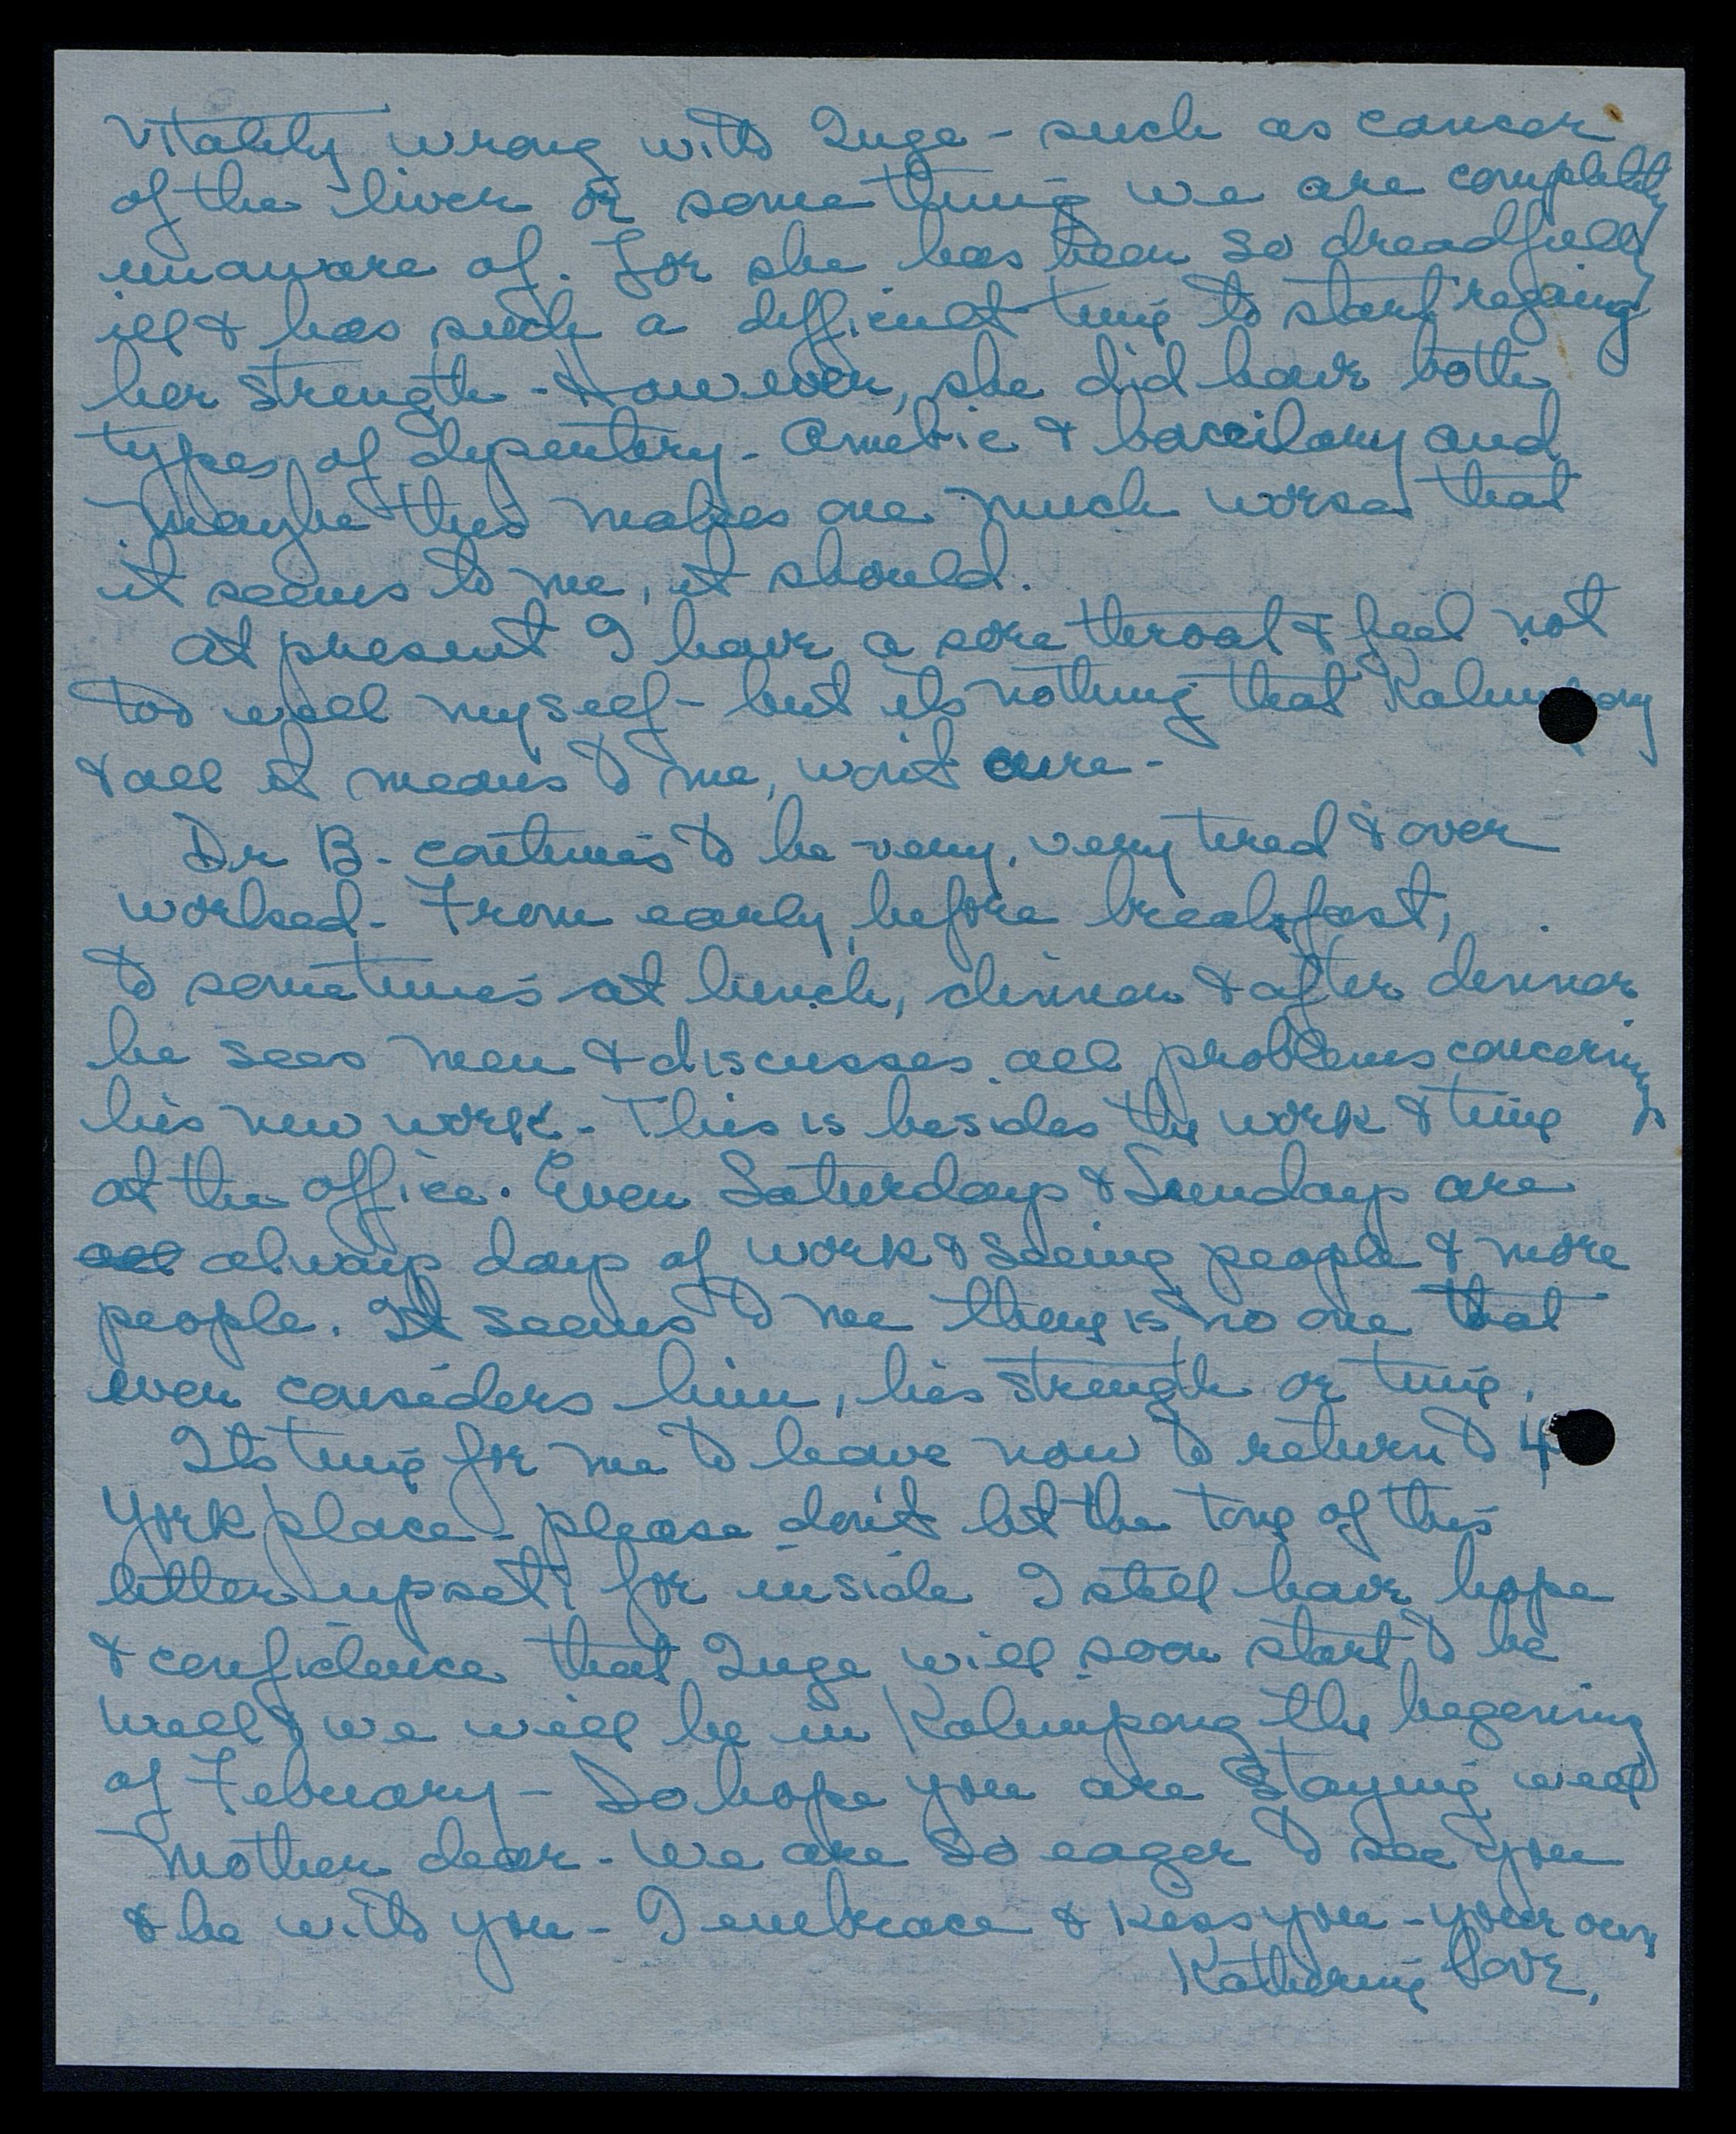 Vitality wrong with Inge - such as cancer
of the liver or something we are completely
unaware of. For she has been so dreadfully
ill & has such a difficult time to start regaing
her strength - However, she did have both
types of dysentery - Amebic & baccilary and
maybe this makes one much worse that
it seems to me, it should.
At present I have a sore throat & feel not
too well myself - but its nothing that Kalimpong
& all it means to me, wont cure -
Dr B - continues to be very, very tired & over
worked - From early, before breakfast,
to sometimes at lunch, dinner & after dinner
he sees men & discusses all problems concerning
his new work - This is besides the work & time
at the office. Even Saturdays & Sundays are
all always days of work & seeing people & more
people. It seems to me there is no one that
even considers him, his strength or time.
Its time for me to leave now to return to 4
York place - please don't let the tone of this
letter upset, for inside I still have hope
& confidence that Inge will soon start to be
well & we will be in Kalimpong the begening
of February - Do hope you are staying well
Mother dear - We are so eager to see you
& be with you - I embrace & kiss you - your own
Katherine Love,